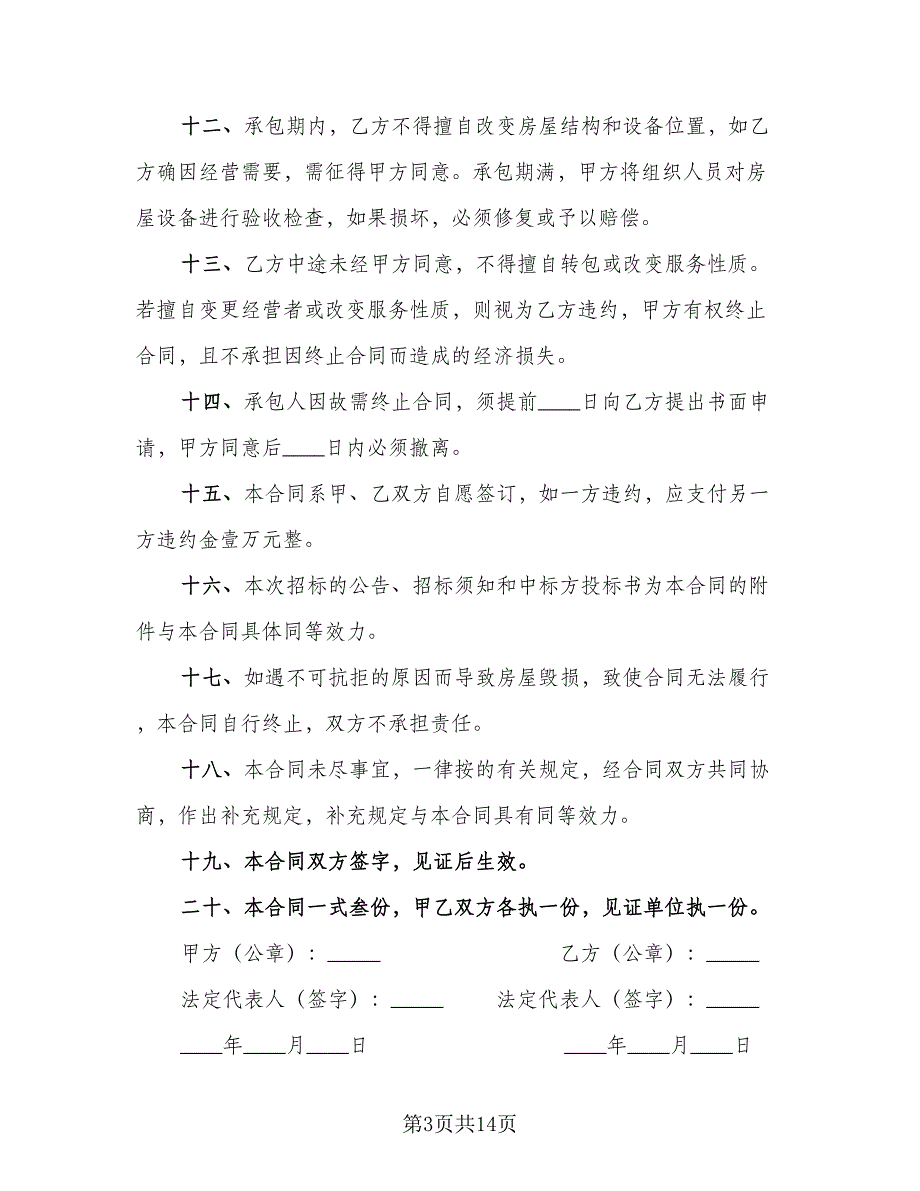 十二、承包期内，乙方不得擅自改变房屋结构和设备位置，如乙
方确因经营需要，需征得甲方同意。承包期满，甲方将组织人员对房
屋设备进行验收检查，如果损坏，必须修复或予以赔偿。
十三、乙方中途未经甲方同意，不得擅自转包或改变服务性质。
若擅自变更经营者或改变服务性质，则视为乙方违约，甲方有权终止
合同，且不承担因终止合同而造成的经济损失。
十四、承包人因故需终止合同，须提前____日向乙方提出书面申
请，甲方同意后____日内必须撤离。
十五、本合同系甲、乙双方自愿签订，如一方违约，应支付另一
方违约金壹万元整。
十六、本次招标的公告、招标须知和中标方投标书为本合同的附
件与本合同具体同等效力。
十七、如遇不可抗拒的原因而导致房屋毁损，致使合同无法履行
，本合同自行终止，双方不承担责任。
十八、本合同未尽事宜，一律按的有关规定，经合同双方共同协
商，作出补充规定，补充规定与本合同具有同等效力。
十九、本合同双方签字，见证后生效。
二十、本合同一式叁份，甲乙双方各执一份，见证单位执一份。
甲方（公章）：_____ 乙方（公章）：_____
法定代表人（签字）：_____ 法定代表人（签字）：_____
____年____月____日 ____年____月____日
第3页共14页